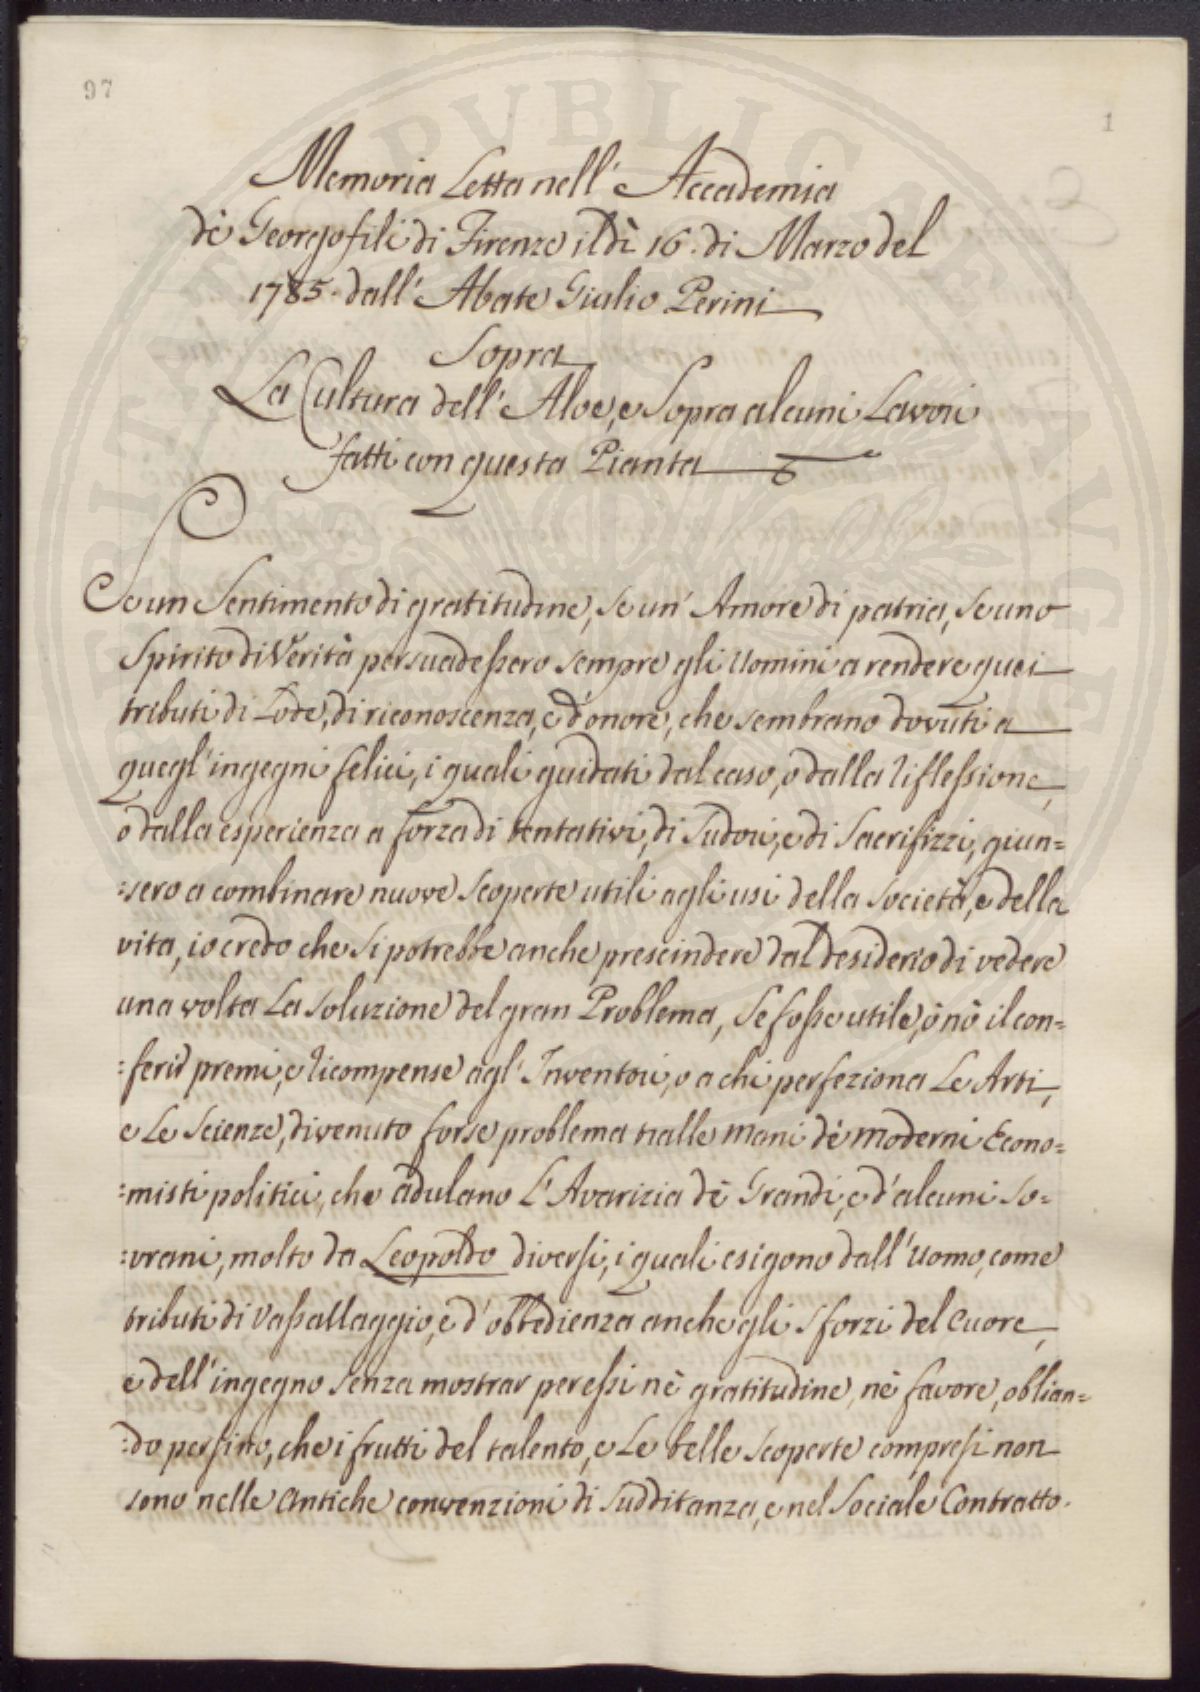 97
1
Memoria Letta nell' Accademia
dè Georgofili di Firenze il dì 16. di Marzo del
1785. dall' Abate Giulio Perini
Sopra
La Cultura dell' Aloe, e Sopra alcuni Lavori
fatti con questa Pianta
Se un Sentimento di gratitudine, se un' Amore di patria, se uno
Spirito di Verità persuadessero sempre gli Uomini a rendere quei
tributi di Lode, di riconoscenza, e d'onore, che sembrano dovuti a
quegl' ingegni felici, i quali guidati dal caso, o dalla riflessione,
o dalla esperienza a forza di tentativi, di Sudori, e di Sacrifizzi, giun=
=sero a combinare nuove Scoperte utili agli usi della Società, e della
vita, io credo che si potrebbe anche prescindere dal desiderio di vedere
una volta La soluzione del gran Problema, Se fosse utile, ò nò il con=
=ferir premi, e ricompense agl' Inventori, o a chi perfeziona Le Arti,
e Le Scienze, divenuto forse problema tralle mani dè moderni Econo=
=misti politici, che adulano L'Avarizia dè Grandi, e d'alcuni So=
=vrani, molto da Leopoldo diversi, i quali esigono dall' Uomo, come
tributi di Vassallaggio, e d'obbedienza anche gli sforzi del Cuore,
e dell' ingegno senza mostrar per essi nè gratitudine, nè favore, oblian=
=do persino, che i frutti del talento, e Le belle scoperte compresi non
sono nelle Antiche convenzioni di Sudditanza, e nel Sociale Contratto.